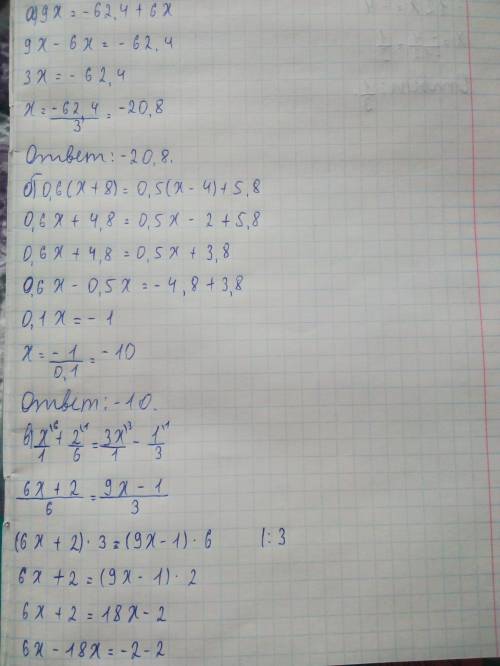 а) 9x = -62,4 + 6x
9x - 6x = -62,4
3x = -62,4
x = -62,4/3 = -20,8
Ответ: -20,8.
б) 0,6(x + 8) = 0,5(x - 4) + 5,8
0,6x + 4,8 = 0,5x - 2 + 5,8
0,6x + 4,8 = 0,5x + 3,8
0,6x - 0,5x = -4,8 + 3,8
0,1x = -1
x = -1/0,1 = -10
Ответ: -10.
в) x/1 \6 + 2/6 \1 = 3x/1 \3 - 1/3 \1
(6x + 2)/6 = (9x - 1)/3
(6x + 2) · 3 = (9x - 1) · 6 |: 3
6x + 2 = (9x - 1) · 2
6x + 2 = 18x - 2
6x - 18x = -2 - 2